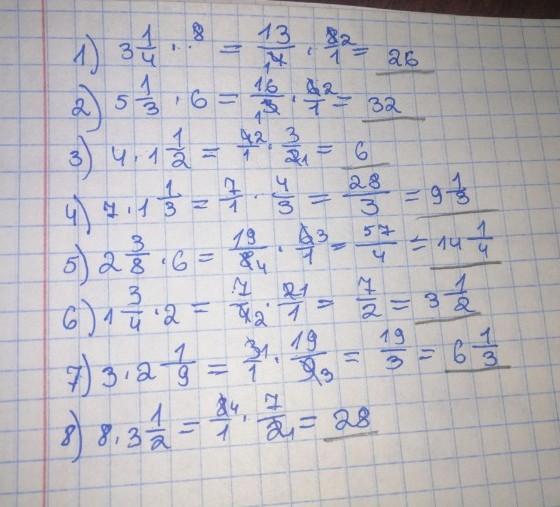 1) 3 1/4 · 8 = 13/4 1 · 8 2/1 = 26
2) 5 1/3 · 6 = 16/3 1 · 6 2/1 = 32
3) 4 · 1 1/2 = 4 2/1 · 3/2 1 = 6
4) 7 · 1 1/3 = 7/1 · 4/3 = 28/3 = 9 1/3
5) 2 3/8 · 6 = 19/8 4 · 6 3/1 = 57/4 = 14 1/4
6) 1 3/4 · 2 = 7/4 2 · 2 1/1 = 7/2 = 3 1/2
7) 3 · 2 1/9 = 3 1/1 · 19/9 3 = 19/3 = 6 1/3
8) 8 · 3 1/2 = 8 4/1 · 7/2 1 = 28